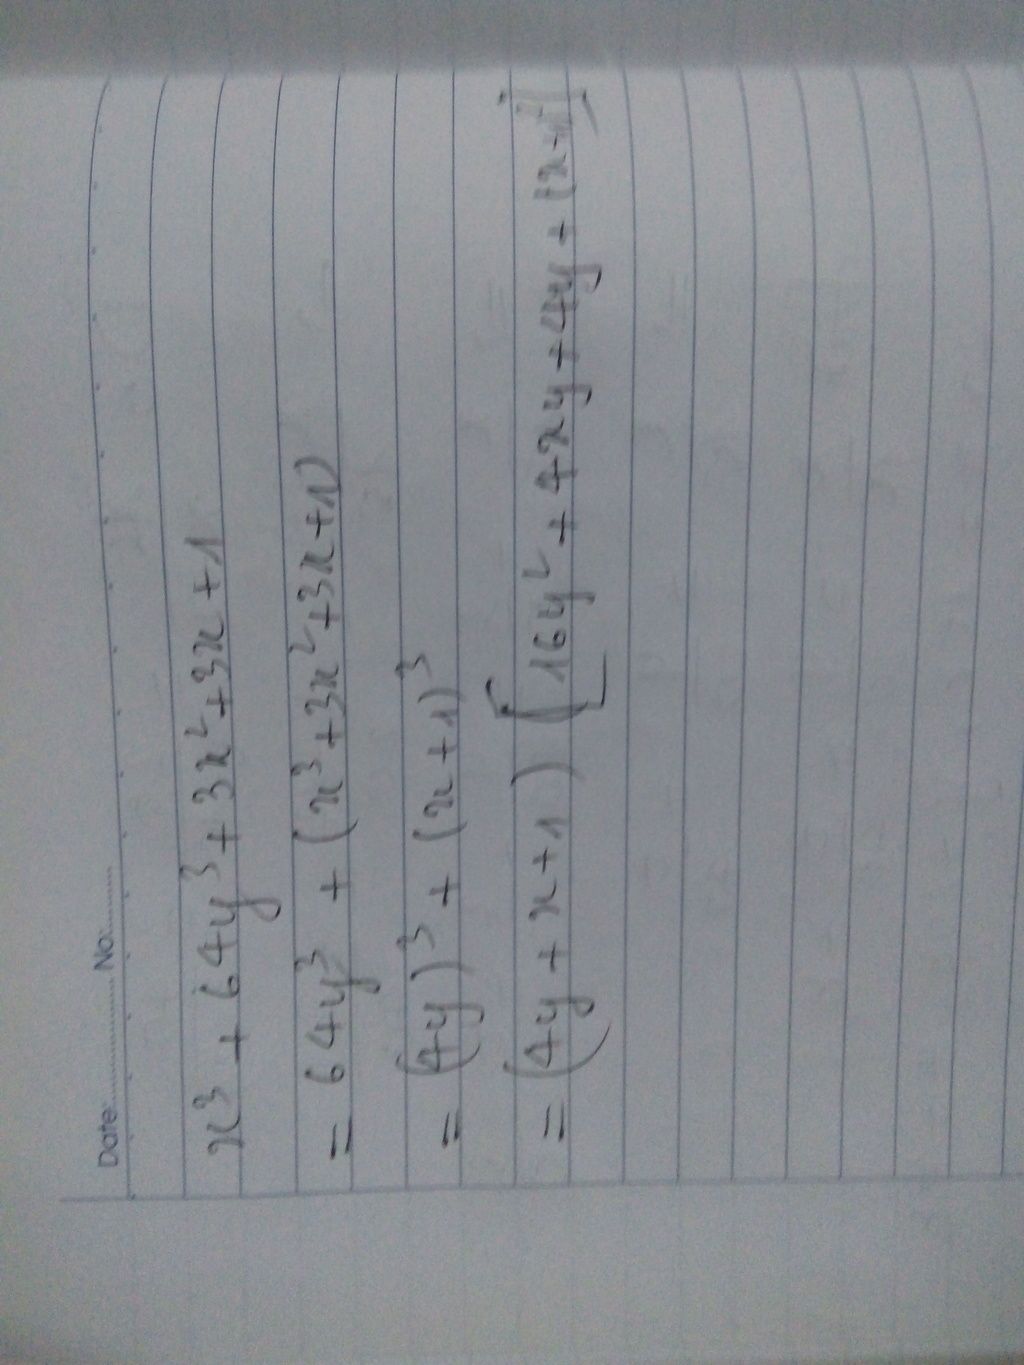 Date:............... No:..........
x³ + 64y³ + 3x² + 3x + 1
= 64y³ + (x³ + 3x² + 3x + 1)
= (4y)³ + (x + 1)³
= (4y + x + 1) [16y² + 4xy + 4y + (x+1)²]